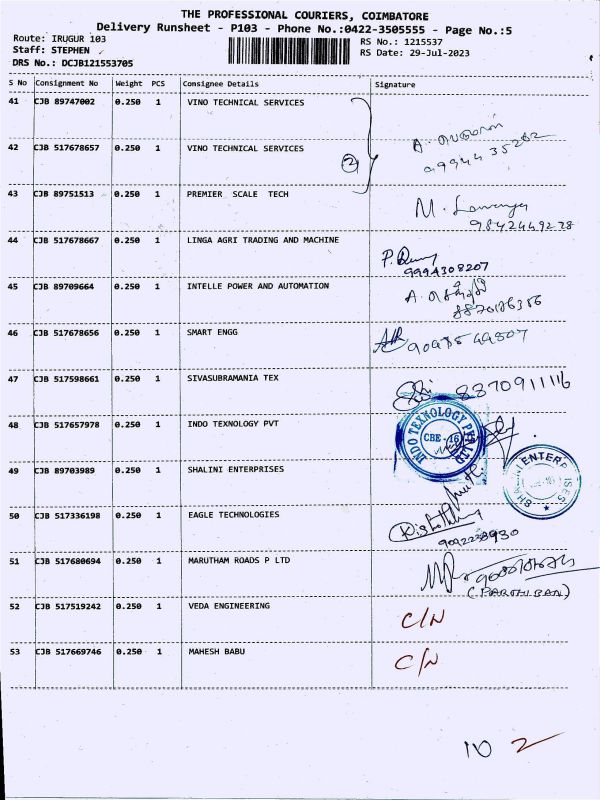 THE PROFESSIONAL COURIERS, COIMBATORE
Delivery Runsheet - P103 - Phone No.:0422-3505555 - Page No.:5
Route: IRUGUR 103
RS No.: 1215537
Staff: STEPHEN
RS Date: 29-Jul-2023
DRS No.: DCJB121553705
S No Consignment No Weight PCS Consignee Details Signature
41 CJB 89747002 0.250 1 VINO TECHNICAL SERVICES
42 CJB 517678657 0.250 1 VINO TECHNICAL SERVICES
2
43 CJB 89751513 0.250 1 PREMIER SCALE TECH
9842449278
44 CJB 517678667 0.250 1 LINGA AGRI TRADING AND MACHINE
9994308207
45 CJB 89709664 0.250 1 INTELLE POWER AND AUTOMATION
46 CJB 517678656 0.250 1 SMART ENGG
47 CJB 517598661 0.250 1 SIVASUBRAMANIA TEX
8870911116
48 CJB 517657978 0.250 1 INDO TEXNOLOGY PVT
INDO TEXNOLOGY PVT LTD
CBE - 16
49 CJB 89703989 0.250 1 SHALINI ENTERPRISES
50 CJB 517336198 0.250 1 EAGLE TECHNOLOGIES
51 CJB 517680694 0.250 1 MARUTHAM ROADS P LTD
(PARTHIBAN)
52 CJB 517519242 0.250 1 VEDA ENGINEERING C/N
53 CJB 517669746 0.250 1 MAHESH BABU C/N
10 2